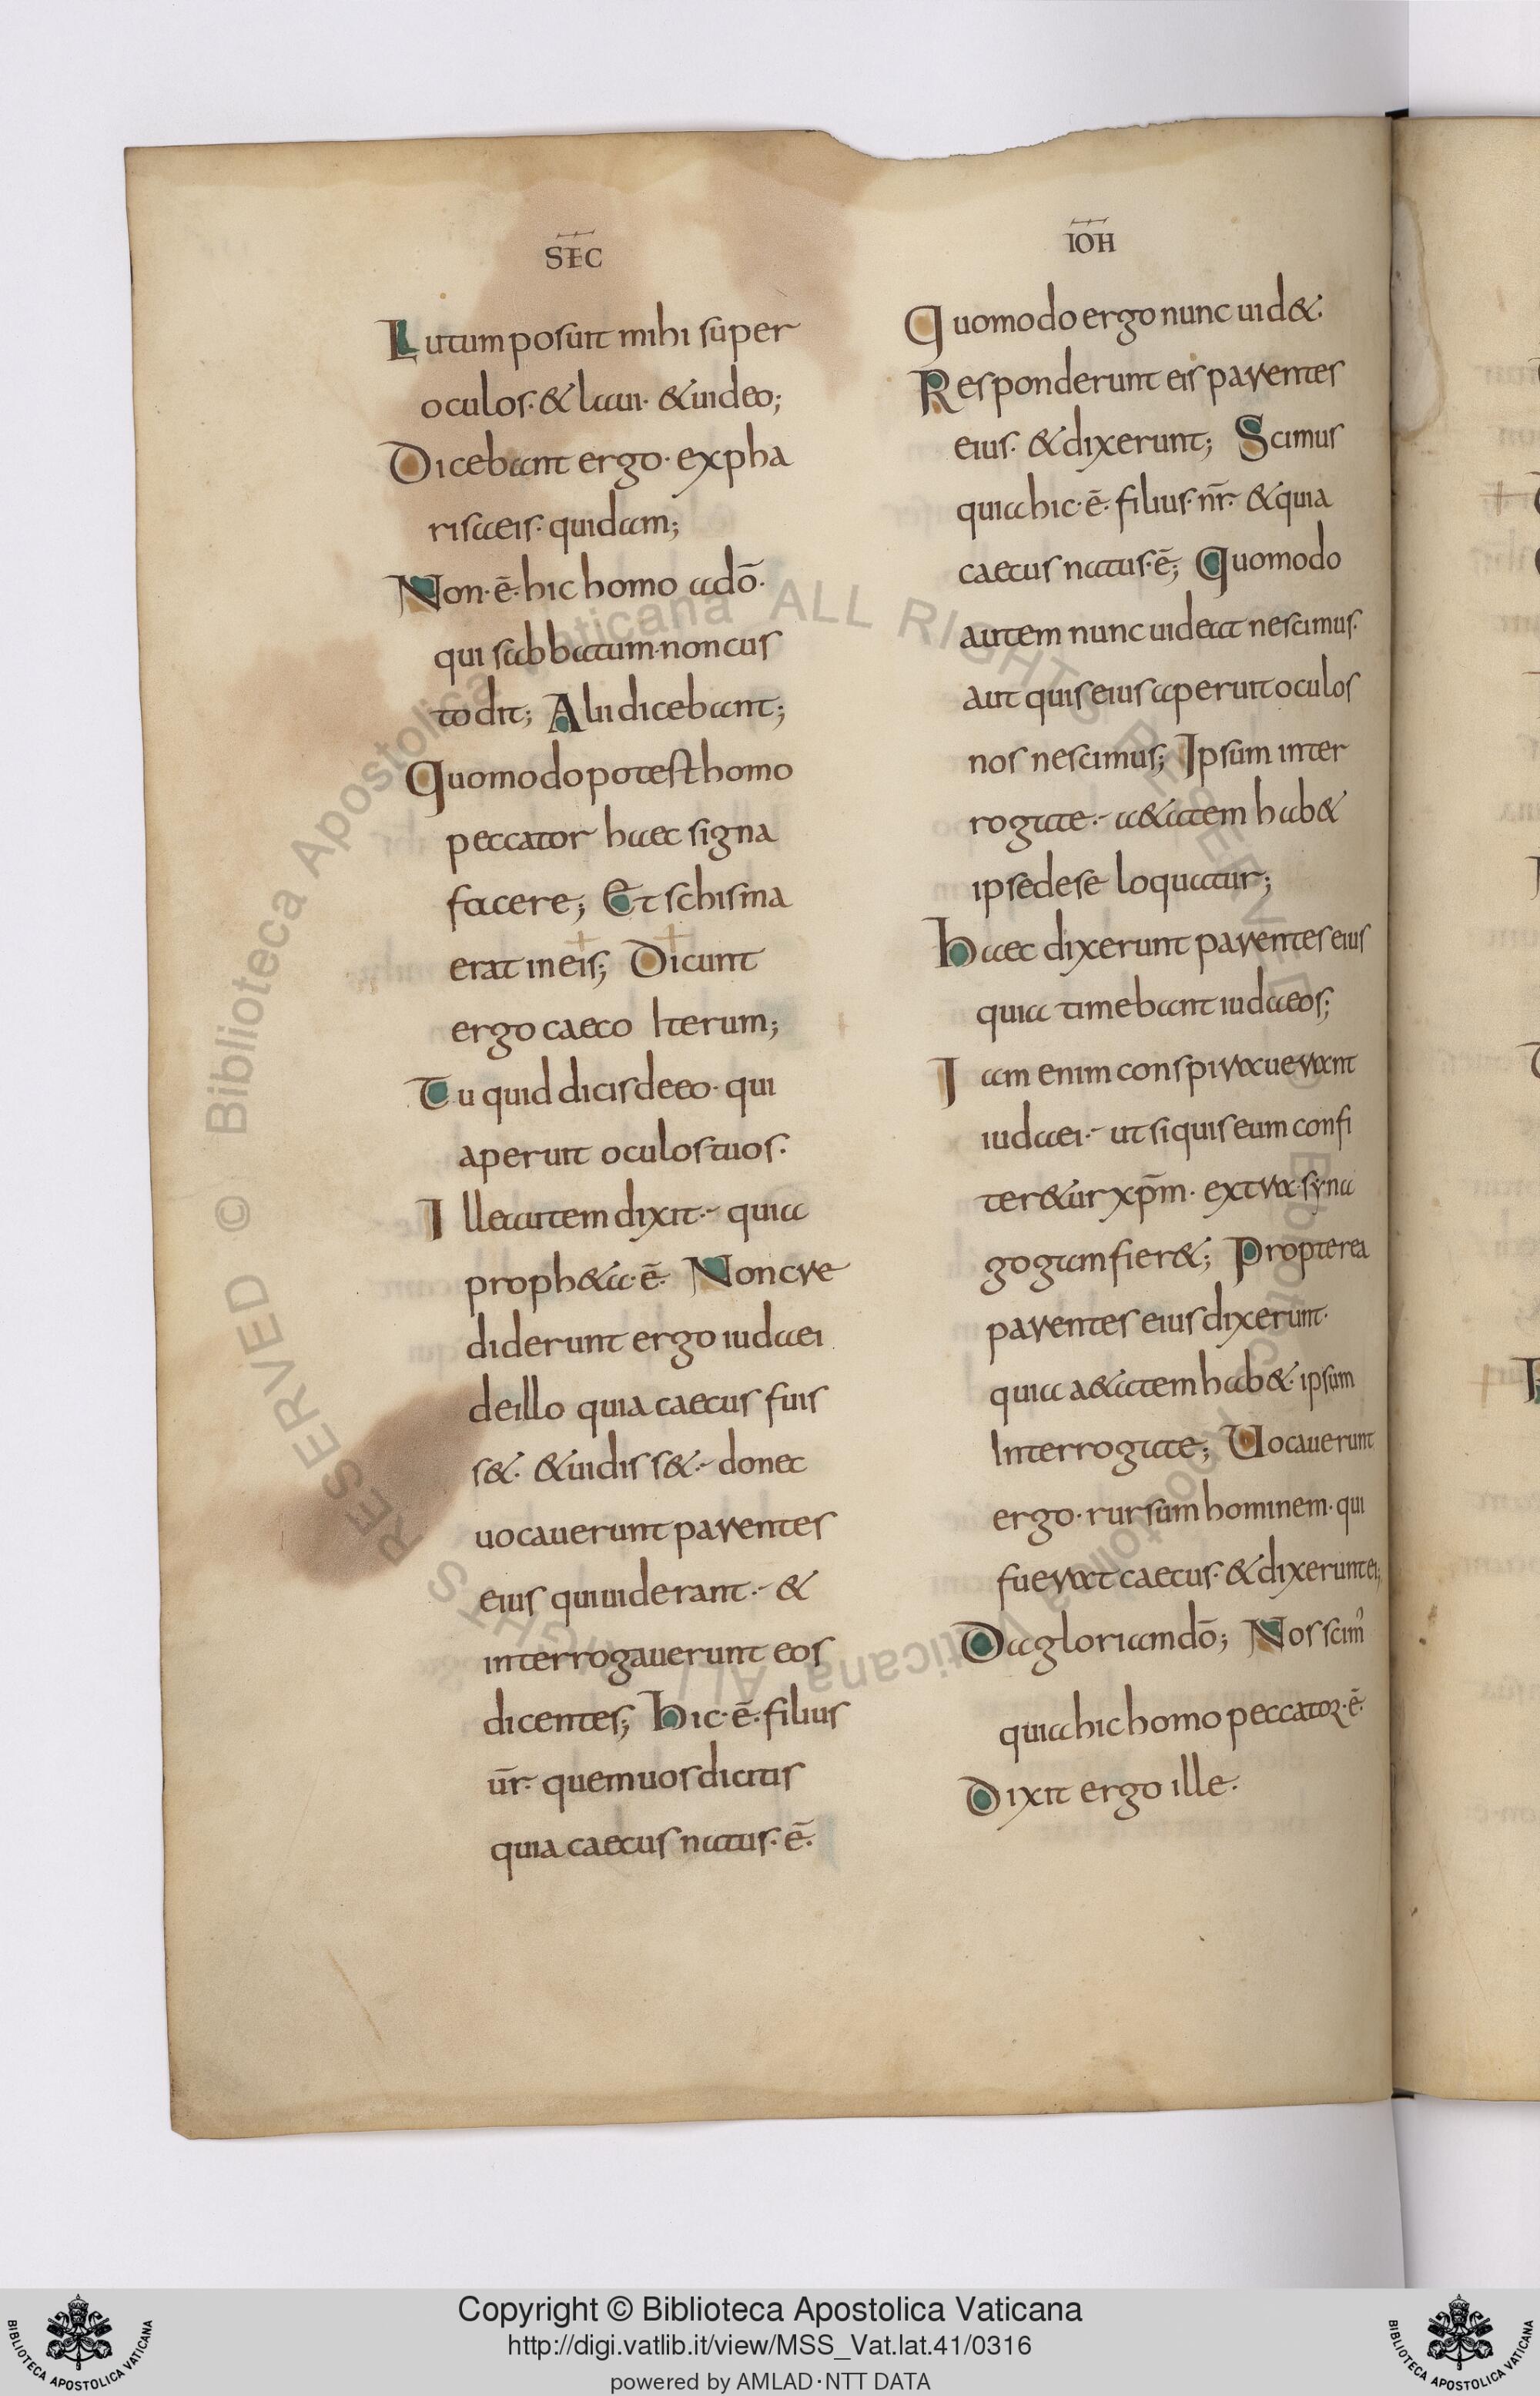 SEC
Lutum posuit mihi super
oculos· & laui· & uideo;
Dicebant ergo· ex pha
risaeis· quidam;
Non· ē· hic homo a dō·
qui sabbatum· non cus
todit; Alii dicebant;
Quomodo potest homo
peccator haec signa
facere; Et schisma
erat in eis; Dicunt
ergo caeco Iterum;
Tu quid dicis de eo· qui
aperuit oculos tuos·
Ille autem dixit·- quia
proph&a· ē· Non cre
diderunt ergo iudaei
de illo quia caecus fuis
s&· & uidiss&·- donec
uocauerunt parentes
eius qui uiderant·- &
interrogauerunt eos
dicentes; Hic· ē· filius
ūr· quem uos dicitis
quia caecus natus· ē·
IOH
Quomodo ergo nunc uid&·
Responderunt eis parentes
eius· & dixerunt; Scimus
quia hic· ē· filius· nr̄· & quia
caecus natus· ē; Quomodo
autem nunc uideat nescimus·
aut quis eius aperuit oculos
nos nescimus; Ipsum inter
rogate·- a&atem hab&
ipse de se loquatur;
Haec dixerunt parentes eius
quia timebant iudaeos;
Iam enim conspirauerant
iudaei·- ut si quis eum confi
ter&ur xpm̄· extra· syna
gogam fier&; Propterea
parentes eius dixerunt·
quia a&atem hab&· ipsum
Interrogate; Uocauerunt
ergo· rursum hominem· qui
fuerat caecus· & dixerunt ei;
Da gloriam dō; Nos scim᾽
quia hic homo peccator· ē·
Dixit ergo ille·
© Biblioteca Apostolica Vaticana ALL RIGHTS RESERVED
© Biblioteca Apostolica Vaticana ALL RIGHTS RESERVED
Copyright © Biblioteca Apostolica Vaticana
http://digi.vatlib.it/view/MSS_Vat.lat.41/0316
powered by AMLAD·NTT DATA
BIBLIOTECA APOSTOLICA VATICANA
BIBLIOTECA APOSTOLICA VATICANA